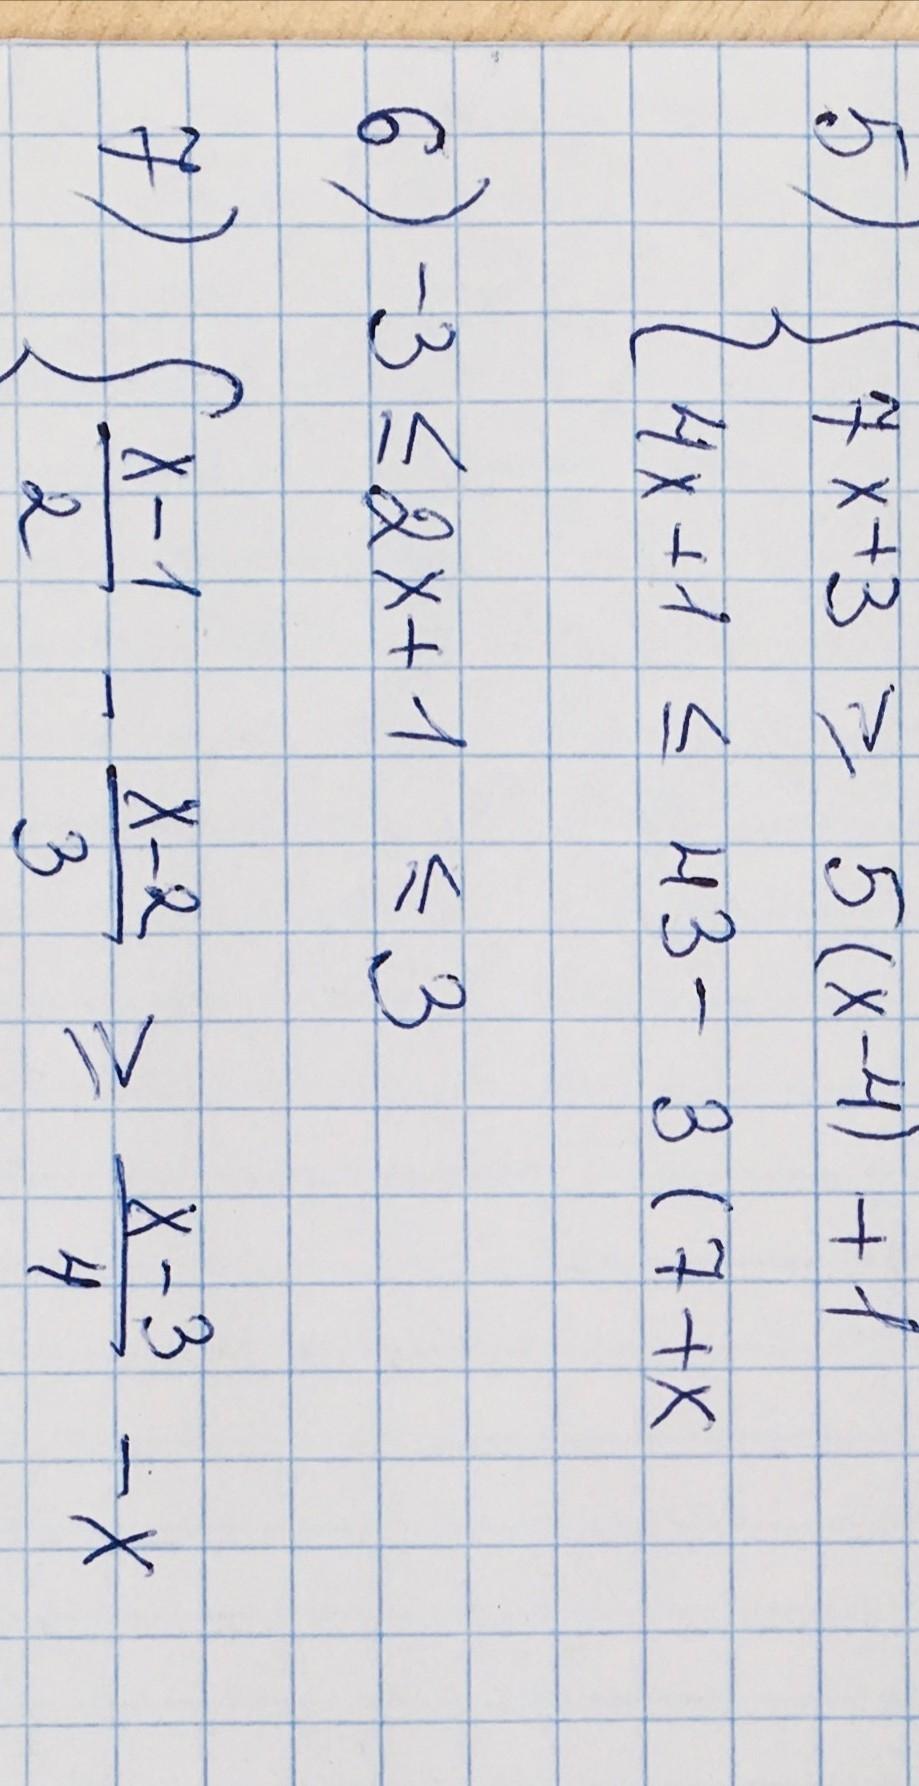 5) { 7x+3 ≥ 5(x-4) + 1
4x+1 ≤ 43 - 3(7+x
6) -3 ≤ 2x+1 ≤ 3
7) { \frac{x-1}{2} - \frac{x-2}{3} ≥ \frac{x-3}{4} - x